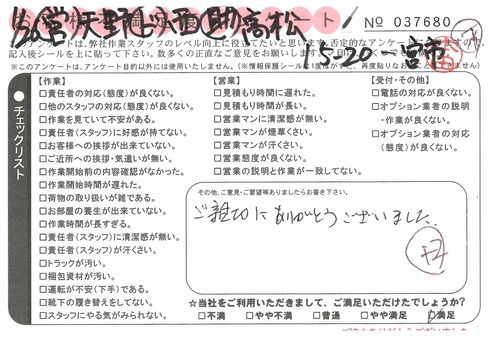 № 037680
15-20 一宮市
このアンケートは、弊社作業スタッフのレベル向上に役立てたいと思います。否定的なアンケート
記入後シールを上に貼って下さい。数多くの正直なご意見をお願いします。
※このアンケートは、アンケート目的以外には使用いたしません。
チェックリスト
【作業】
□責任者の対応(態度)が良くない。
□他のスタッフの対応(態度)が良くない。
□作業を見ていて不安がある。
□責任者(スタッフ)に好感が持てない。
□お客様への挨拶が出来ていない。
□ご近所への挨拶・気遣いが無い。
□作業開始前の内容確認がなかった。
□作業開始時間が遅れた。
□荷物の取り扱いが雑である。
□お部屋の養生が出来ていない。
□作業時間が長すぎる。
□責任者(スタッフ)に清潔感が無い。
□責任者(スタッフ)が汗くさい。
□トラックが汚い。
□梱包資材が汚い。
□運転が不安(下手)である。
□靴下の履き替えをしてない。
□スタッフにやる気がみられない。
【営業】
□見積もり時間に遅れた。
□見積もり時間が長い。
□営業マンに清潔感が無い。
□営業マンが煙草くさい。
□営業マンが汗くさい。
□営業態度が良くない。
□営業の説明と作業が一致してない。
【受付・その他】
□電話の対応が良くない。
□オプション業者の説明
・作業が良くない。
□オプション業者の対応
(態度)が良くない。
その他、ご意見・ご要望等ありましたらお書き下さい。
ご親切にありがとうございました。
☆当社をご利用いただきまして、ご満足いただけたでしょうか？
□不満 □やや不満 □普通 □やや満足 □満足